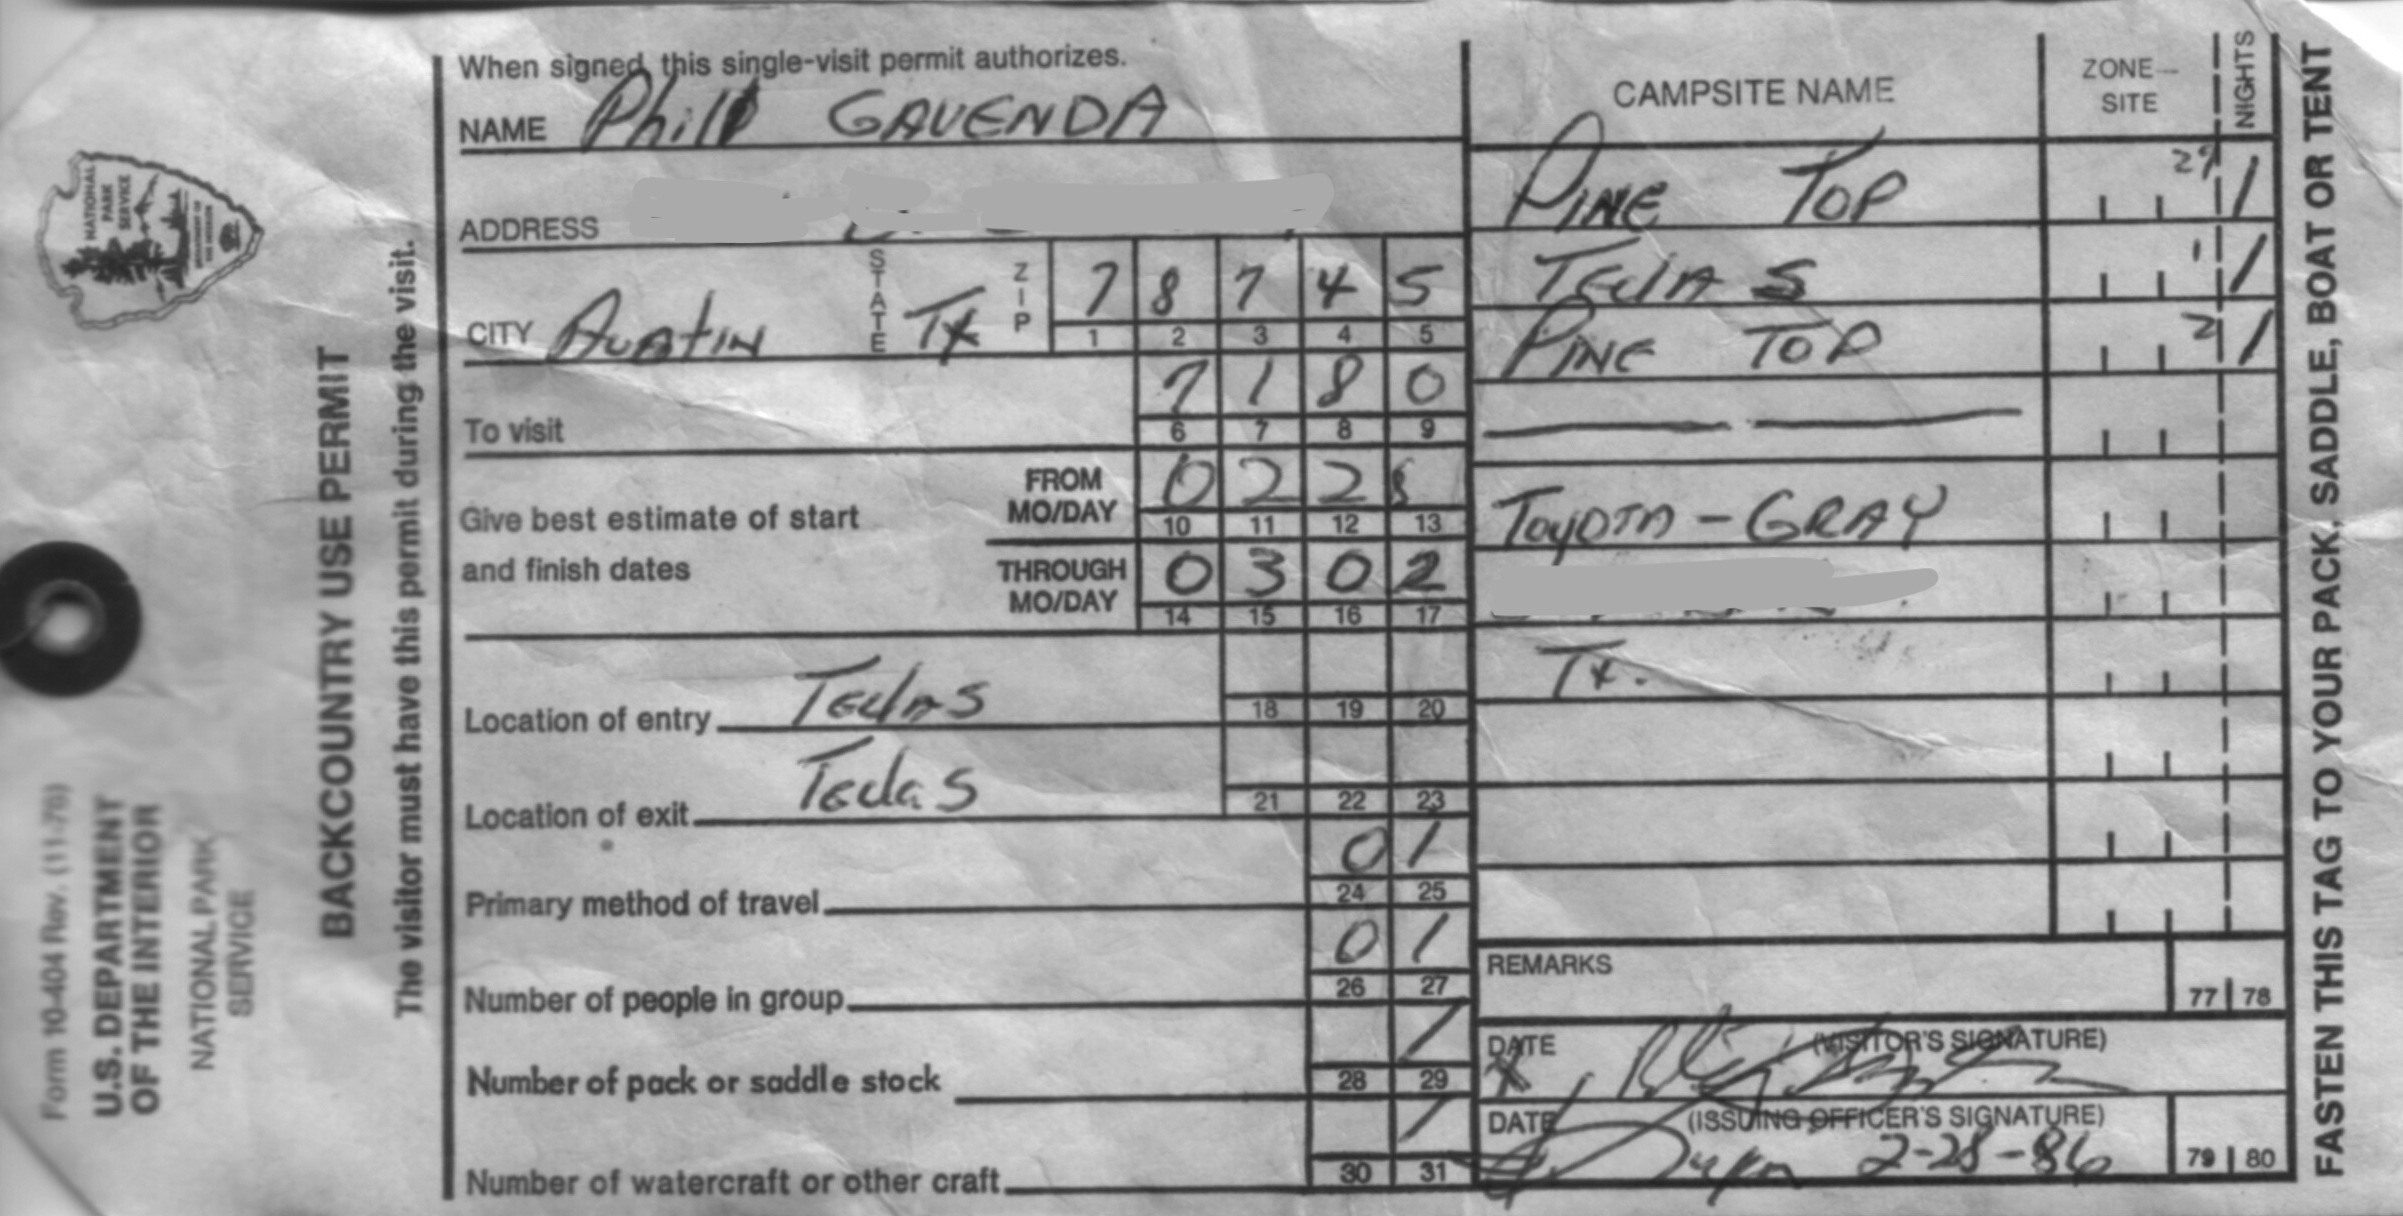 NATIONAL
PARK
SERVICE
Form 10-404 Rev. (11-76)
U.S. DEPARTMENT
OF THE INTERIOR
NATIONAL PARK
SERVICE
BACKCOUNTRY USE PERMIT
The visitor must have this permit during the visit.
When signed, this single-visit permit authorizes.
NAME Phill GAVENDA
ADDRESS
CITY Austin STATE TX ZIP 7 8 7 4 5
1 2 3 4 5
7 1 8 0
To visit 6 7 8 9
Give best estimate of start
and finish dates
FROM
MO/DAY 0 2 2 8
10 11 12 13
THROUGH
MO/DAY 0 3 0 2
14 15 16 17
Location of entry Tejas
18 19 20
Location of exit Tejas
21 22 23
0 1
Primary method of travel 24 25
0 1
Number of people in group 26 27
/
Number of pack or saddle stock 28 29
/
Number of watercraft or other craft 30 31
CAMPSITE NAME ZONE— SITE NIGHTS
PINE TOP 1
Tejas 1 1
PINE TOP 2 1
Toyota - GRAY
Tx.
REMARKS
77 78
DATE (VISITOR'S SIGNATURE)
X
DATE (ISSUING OFFICER'S SIGNATURE)
2-28-86
79 80
FASTEN THIS TAG TO YOUR PACK, SADDLE, BOAT OR TENT